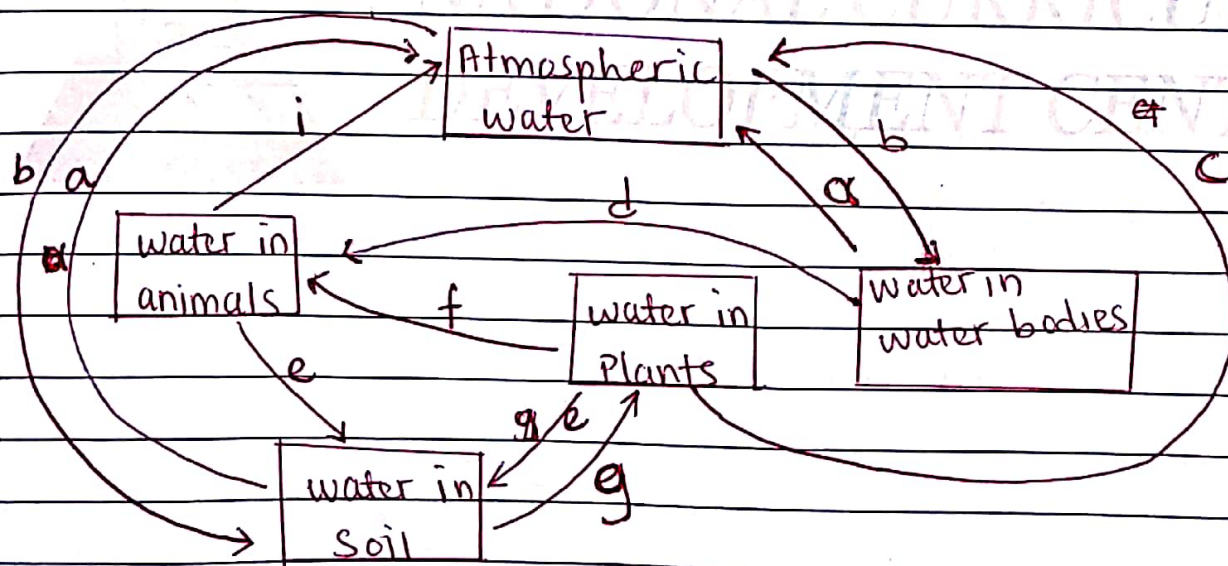 Atmospheric
water
i
b
a
b
a
c
d
water in
animals
f
water in
Plants
water in
water bodies
e
e
g
water in
soil